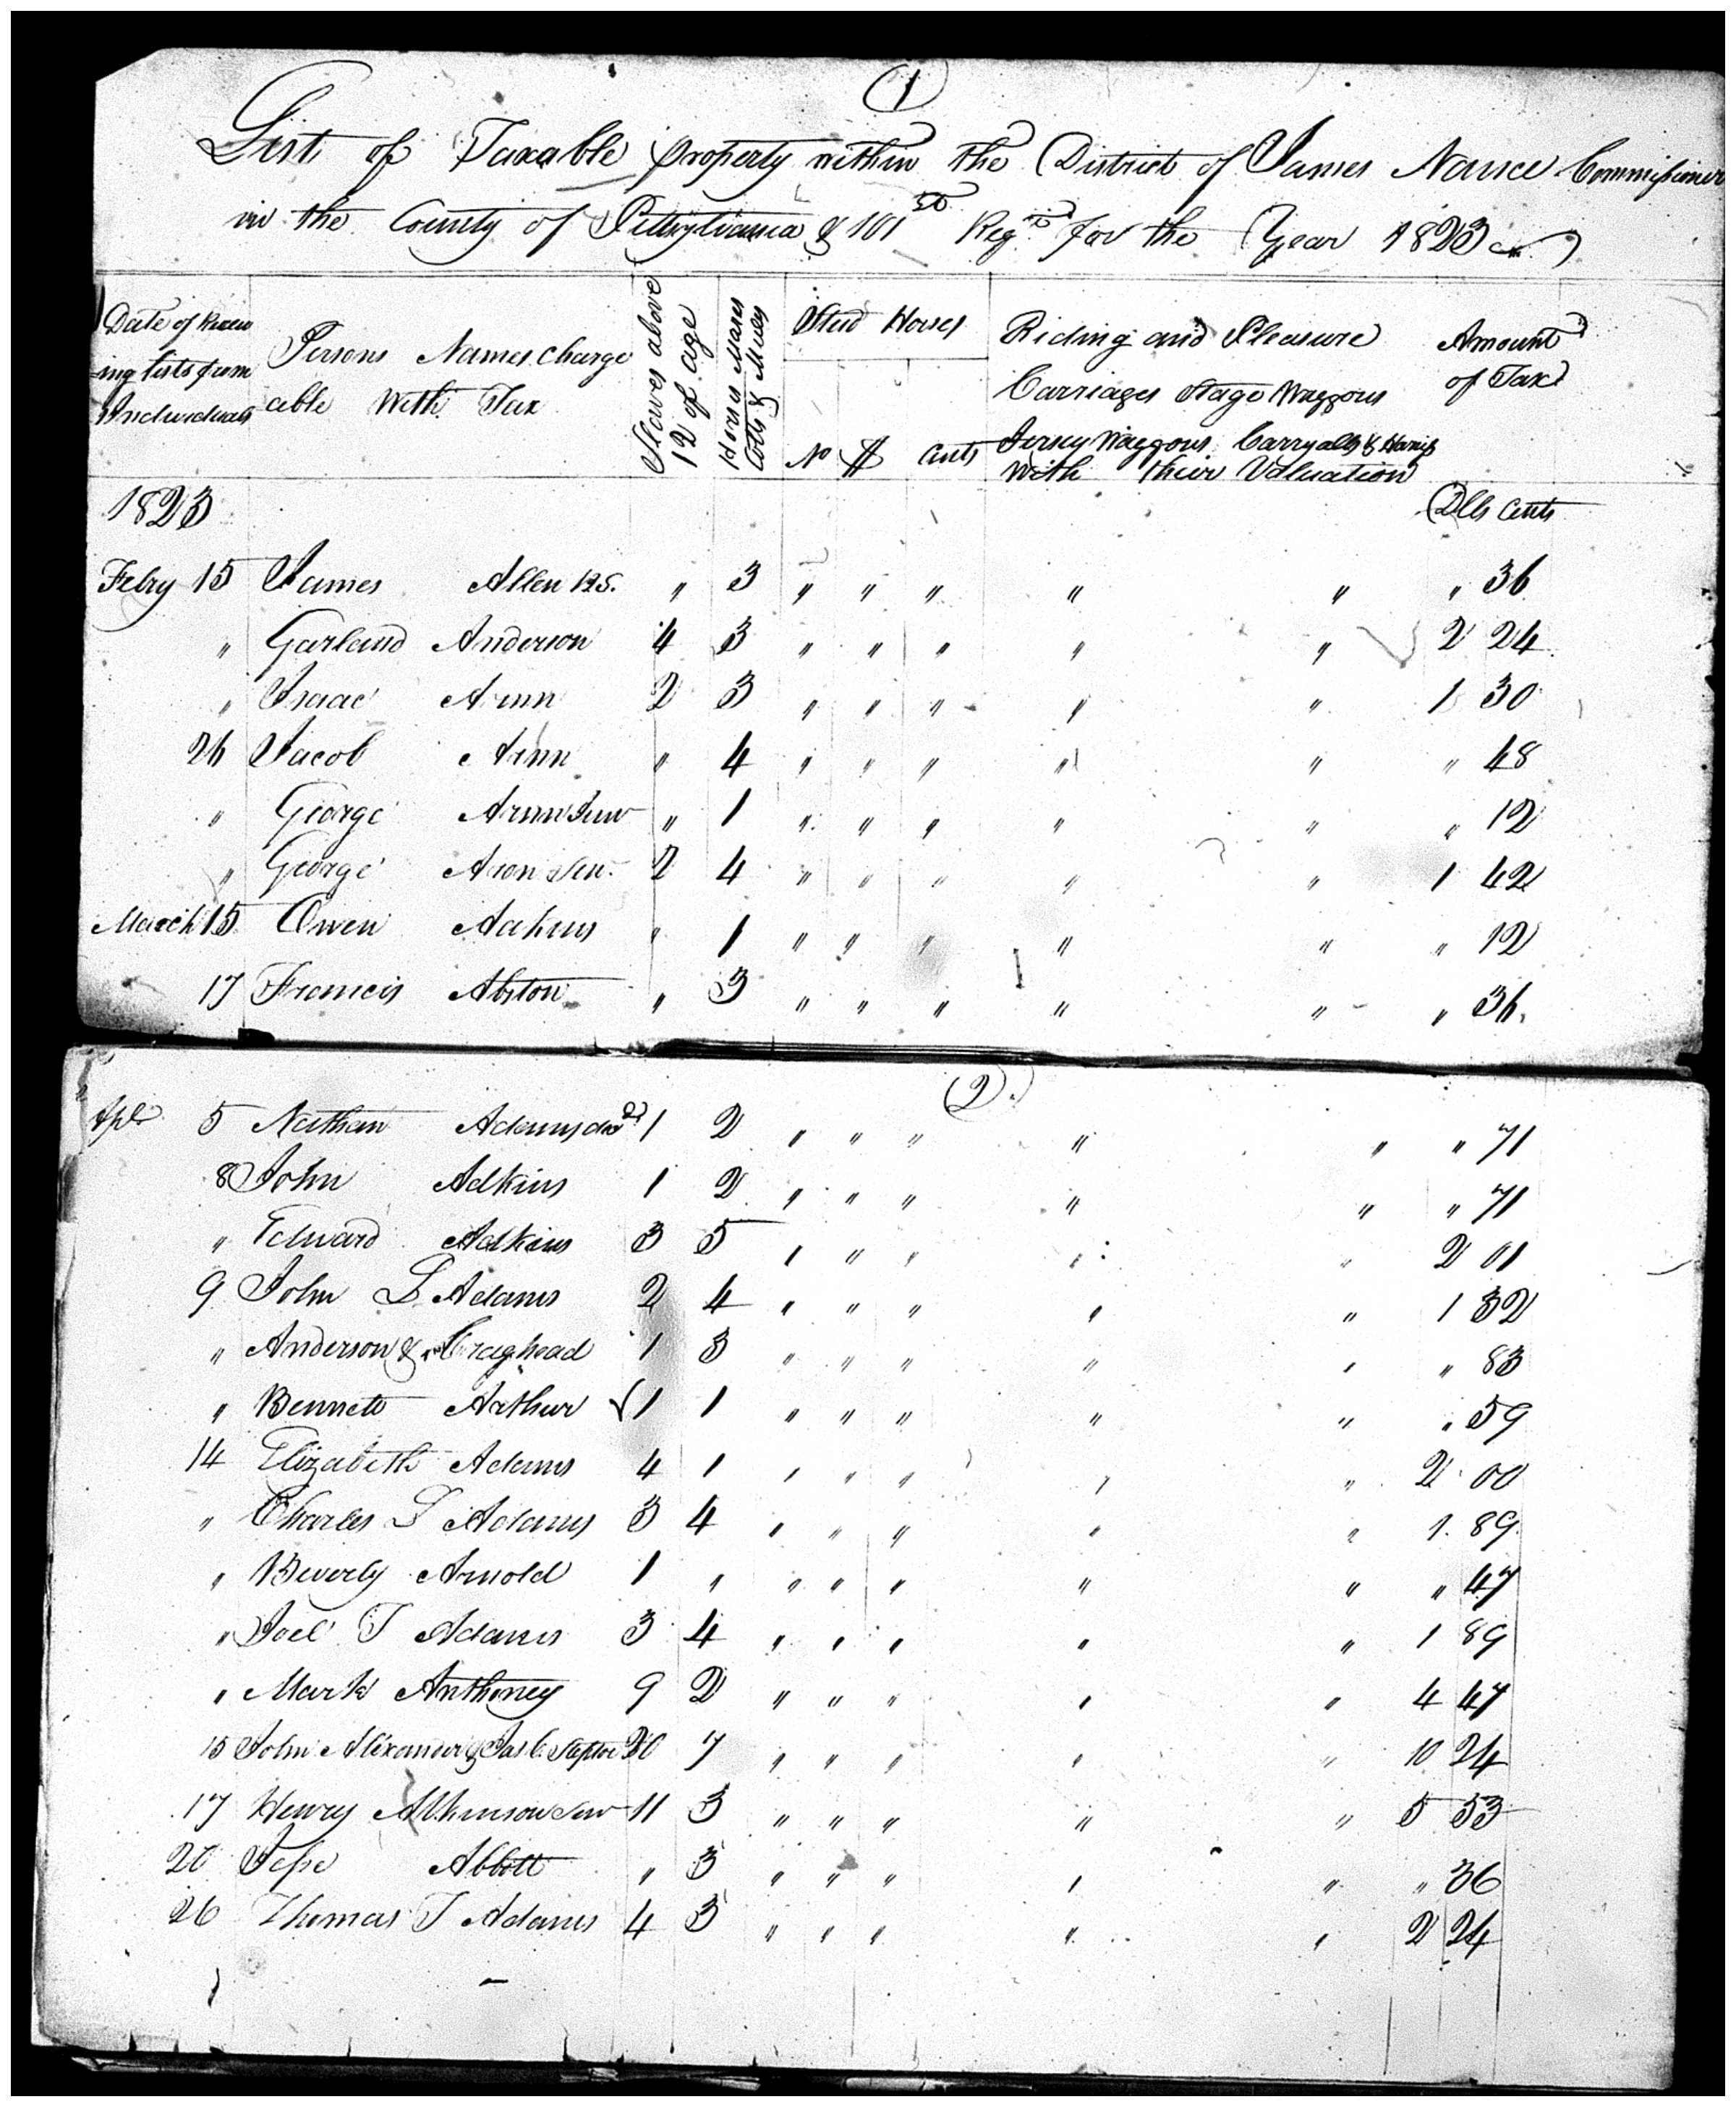 1
List of Taxable property within the District of James Nance Commissioner
in the County of Pittsylvania & 101st Regt for the Year 1823
Date of Receiv
ing lists from
Individuals
Persons Names Charge
able With Tax
Slaves above
12 of age
Horses Mares
Colts & Mules
Stud Horses
No $ Cents
Riding and Pleasure
Carriages Stage Waggons
Jersey Waggons Carryalls & Harness
With their Valuation
Amount
of Tax
1823 Dlls Cents
Feby 15 James Allen " 3 " " " " " " 36
" Garland Anderson 4 3 " " " " " 2 24
" Isaac Arnn 2 3 " " " " " 1 30
26 Jacob Arnn " 4 " " " " " " 48
" George Arnn Junr " 1 " " " " " " 12
" George Aron Sen. 2 4 " " " " " 1 42
March 15 Owen Adkins " 1 " " " " " " 12
17 Francis Abston " 3 " " " " " " 36
2.
Apl 5 Nathan Adams decd 1 2 " " " " " " 71
8 John Adkins 1 2 " " " " " " 71
" Edward Adkins 3 5 " " " " " 2 01
9 John L Adams 2 4 " " " " " 1 32
" Anderson & Craghead 1 3 " " " " " " 83
" Bennett Arthur 1 1 " " " " " " 59
14 Elizabeth Adams 4 1 " " " " " 2 00
" Charles L Adams 3 4 " " " " " 1. 89
" Beverly Arnold 1 " " " " " " " 47
" Joel T Adams 3 4 " " " " " 1 89
" Mark Anthoney 9 2 " " " " " 4 47
15 John Alexander & Jas C 20 7 " " " " " 10 24
17 Henry Atkinson Senr 11 3 " " " " " 5 53
20 Jesse Abbott " 3 " " " " " " 36
26 Thomas T Adams 4 3 " " " " " 2 24